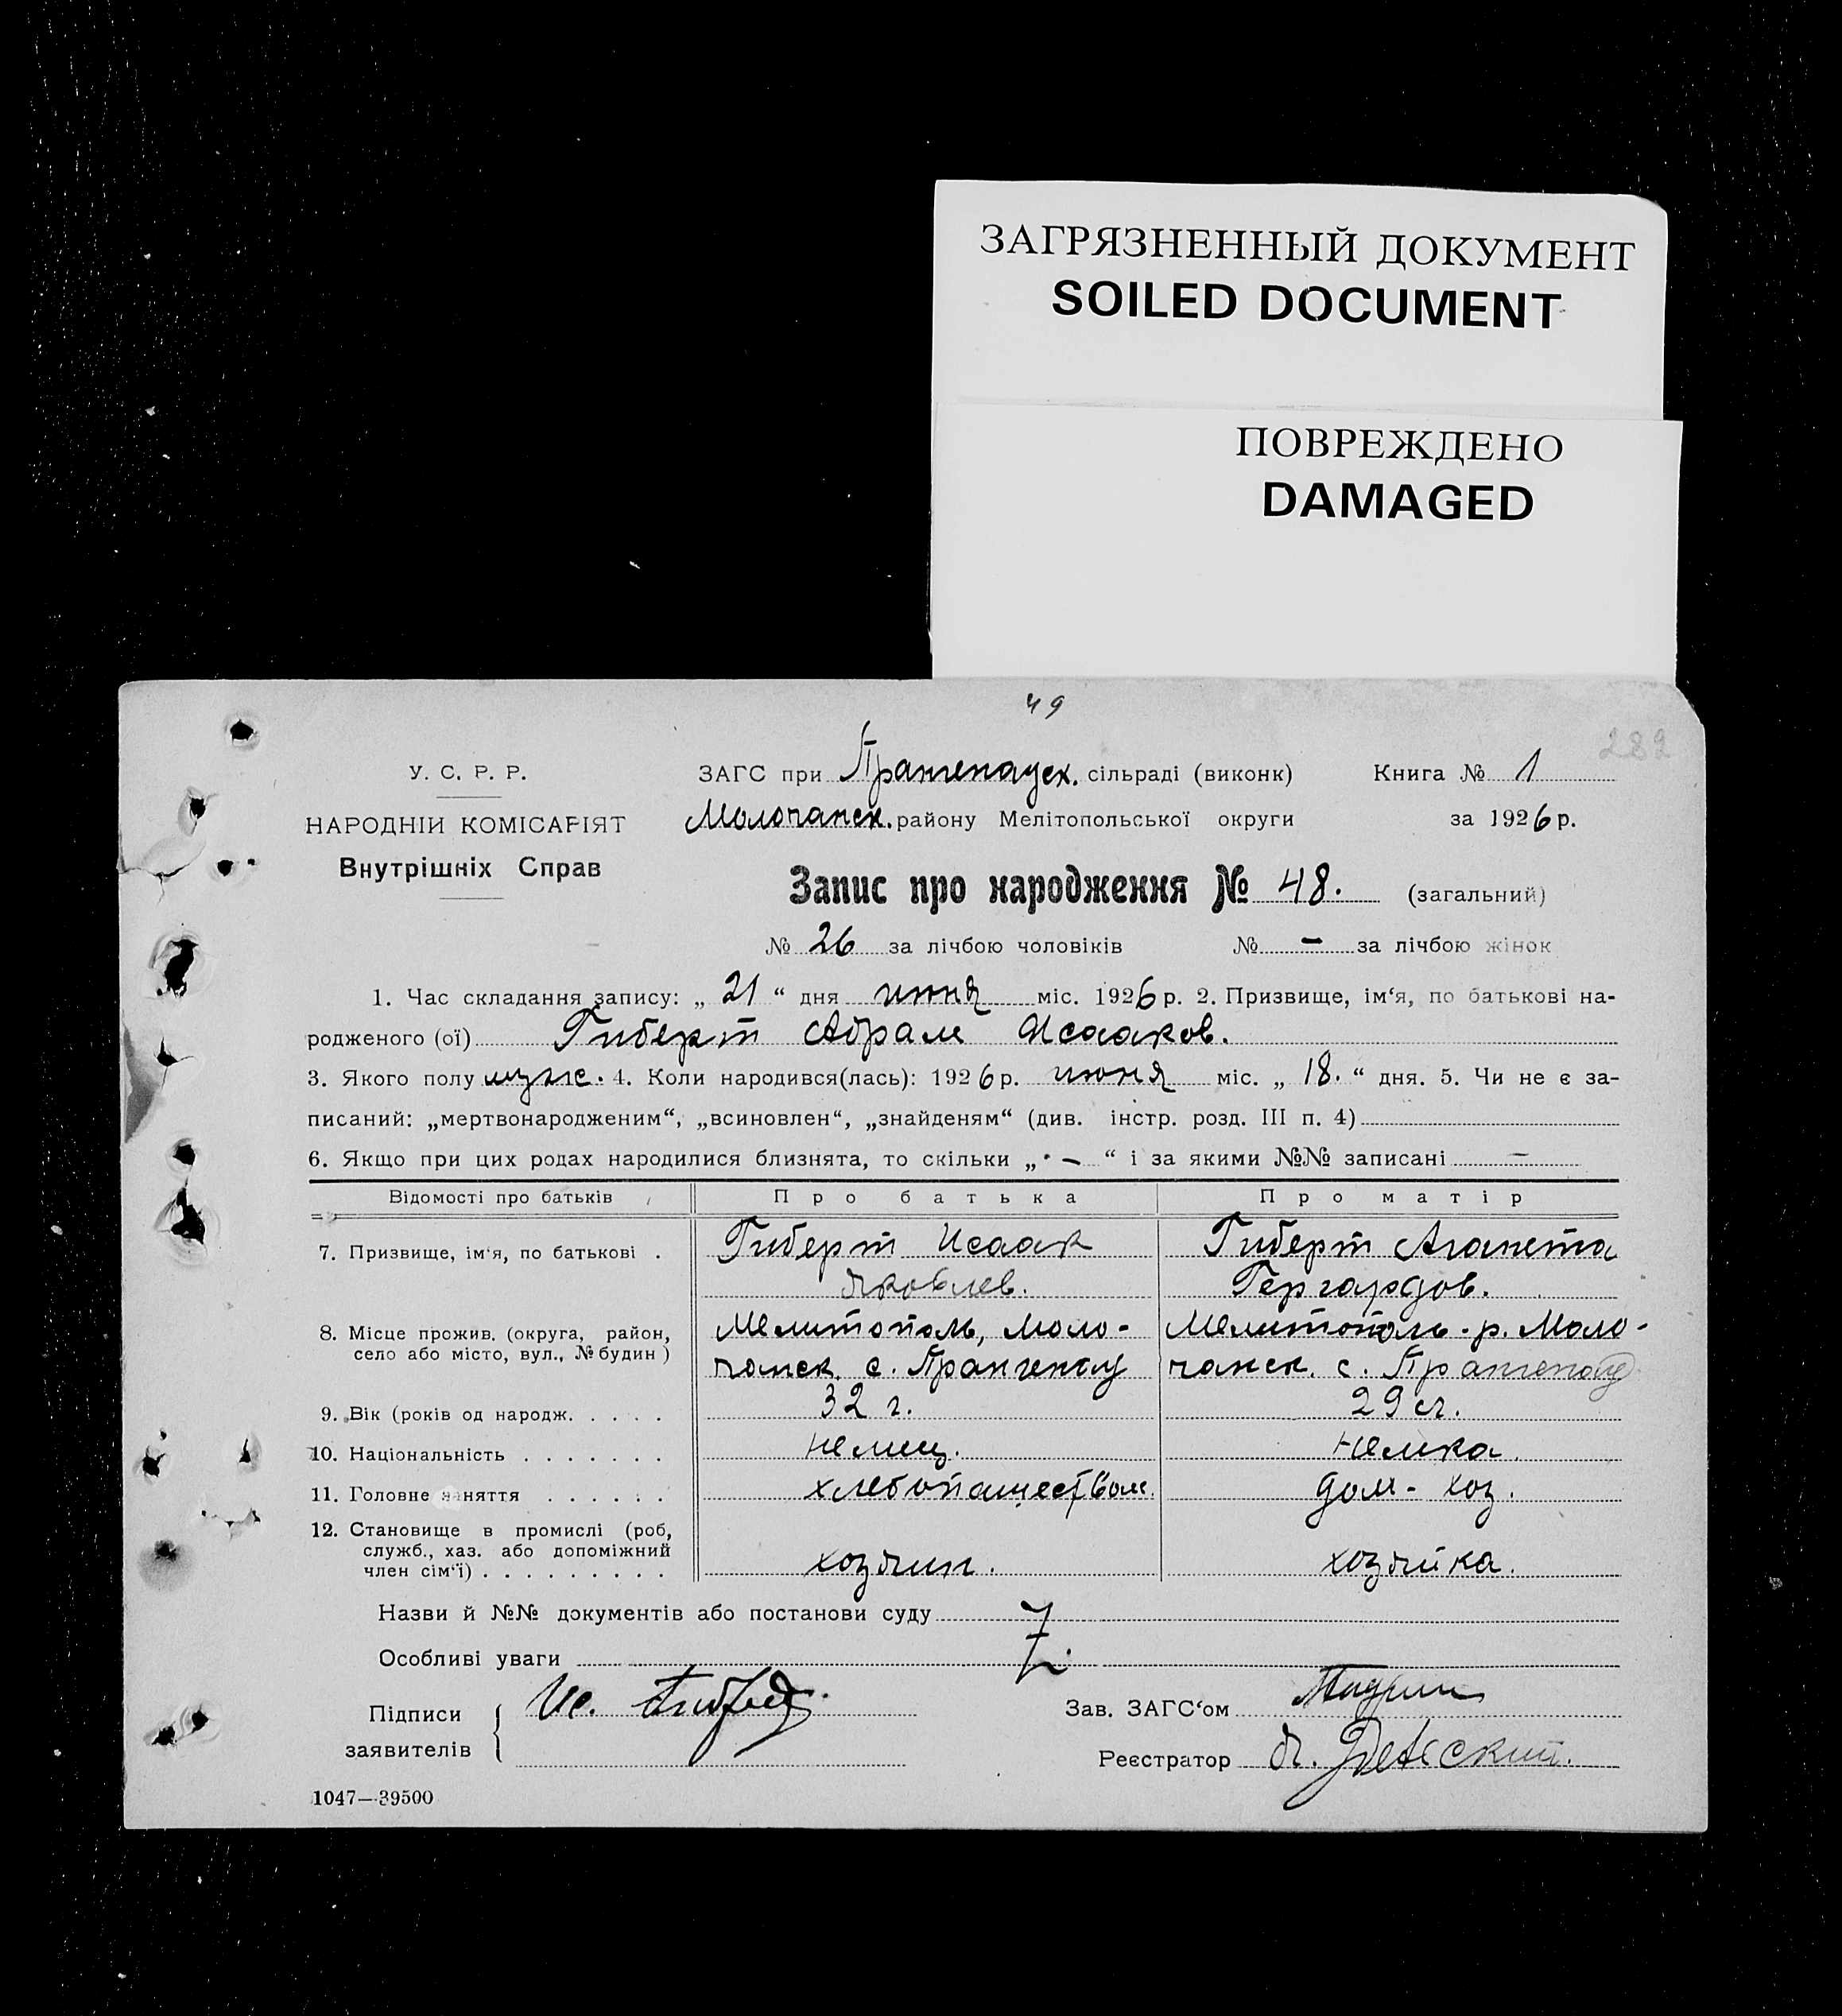 ЗАГРЯЗНЕННЫЙ ДОКУМЕНТ
SOILED DOCUMENT
ПОВРЕЖДЕНО
DAMAGED
49
282
У. С. Р. Р.
НАРОДНІЙ КОМІСАРІЯТ
Внутрішніх Справ
ЗАГС при Прангенауск. сільраді (виконк) Книга № 1
Молочанск. району Мелітопольської округи за 1926 р.
Запис про народження № 48. (загальний)
№ 26 за лічбою чоловіків № – за лічбою жінок
1. Час складання запису: „ 21 “ дня июня міс. 1926 р. 2. Призвище, ім‘я, по батькові на-
родженого (ої) Гиберт Абрам Исааков.
3. Якого полу муж. 4. Коли народився(лась): 1926 р. июня міс. „ 18. “ дня. 5. Чи не є за-
писаний: „мертвонародженим“, „всиновлен“, „знайденям“ (див. інстр. розд. III п. 4)
6. Якщо при цих родах народилися близнята, то скільки „ – “ і за якими №№ записані –
Відомості про батьків Про батька Про матір
7. Призвище, ім‘я, по батькові . Гиберт Исаак Гиберт Аганета
Яковлев. Гергардов.
8. Місце прожив. (округа, район, Мелитополь, Моло- Мелитополь. р. Моло-
село або місто, вул., № будин) чанск. с. Прангенау чанск. с. Прангенау
9. Вік (років од народж. . . . . 32 г. 29 л.
10. Національність . . . . . . . немец. немка.
11. Головне заняття . . . . . . хлебопашеством. дом-хоз.
12. Становище в промислі (роб,
служб., хаз. або допоміжний
член сім‘ї) . . . . . . . . . хозяин. хозяйка.
Назви й №№ документів або постанови суду
Особливі уваги
Z.
Підписи Ис. Гиберт Зав. ЗАГС‘ом
заявителів Реєстратор
1047—39500